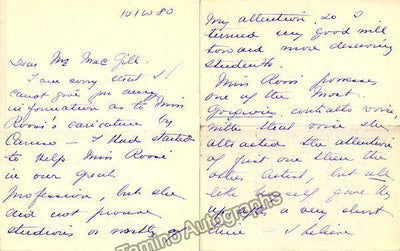 101 W 80
Dear Mr Mac Gill.
I am sorry that I
cannot give you any
information as to Miss
Rossi's caricature by
Caruso – I had started
to help Miss Rossi
in our great
profession, but she
did not prove
studious or worthy of
my attention, so I
turned my good will
toward more deserving
students.
Miss Rossi possesses
one of the most
gorgeous contralto voices,
with that voice she
attracted the attention
of first one then the
other artist, but all
like myself gave her
up after a very short
time – I believe
Tamino Autographs